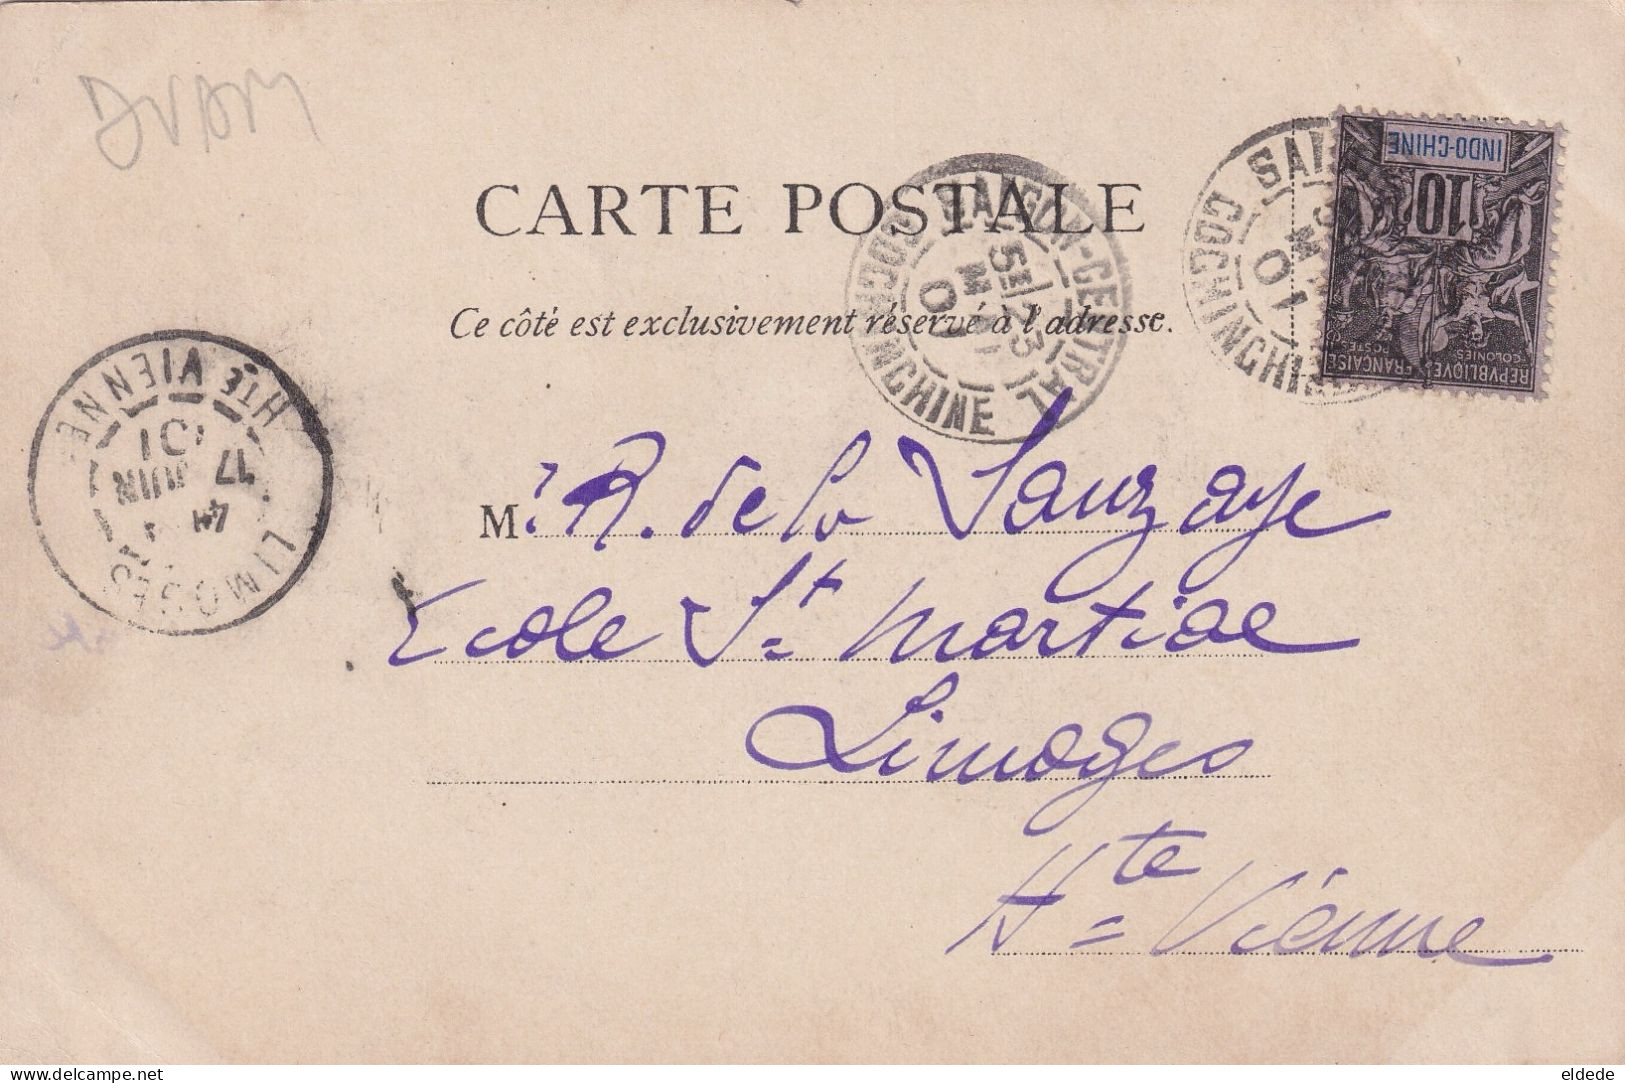 CARTE POSTALE
Ce côté est exclusivement réservé à l'adresse.
SAIGON-CENTRAL
5E 23
MAI
01
COCHINCHINE
SAI
COCHINCHI
01
INDO-CHINE
10
REPVBLIQVE FRANÇAISE
COLONIES
POSTES
LIMOGES
4E
17 JUIN
01
HTE VIENNE
M. R. de la Sauzaye
Ecole St Martial
Limoges
Hte Vienne
delcampe.net
eldede